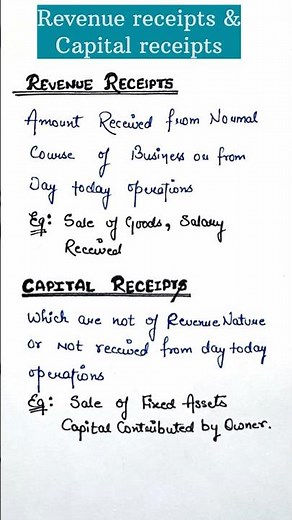 Revenue receipts &
Capital receipts
REVENUE RECEIPTS
Amount Received from Normal
Course of Business or from
Day today operations
Eg: Sale of Goods, Salary
Received
CAPITAL RECEIPTS
Which are not of Revenue Nature
or Not received from day today
operations
Eg: Sale of Fixed Assets
Capital Contributed by Owner.